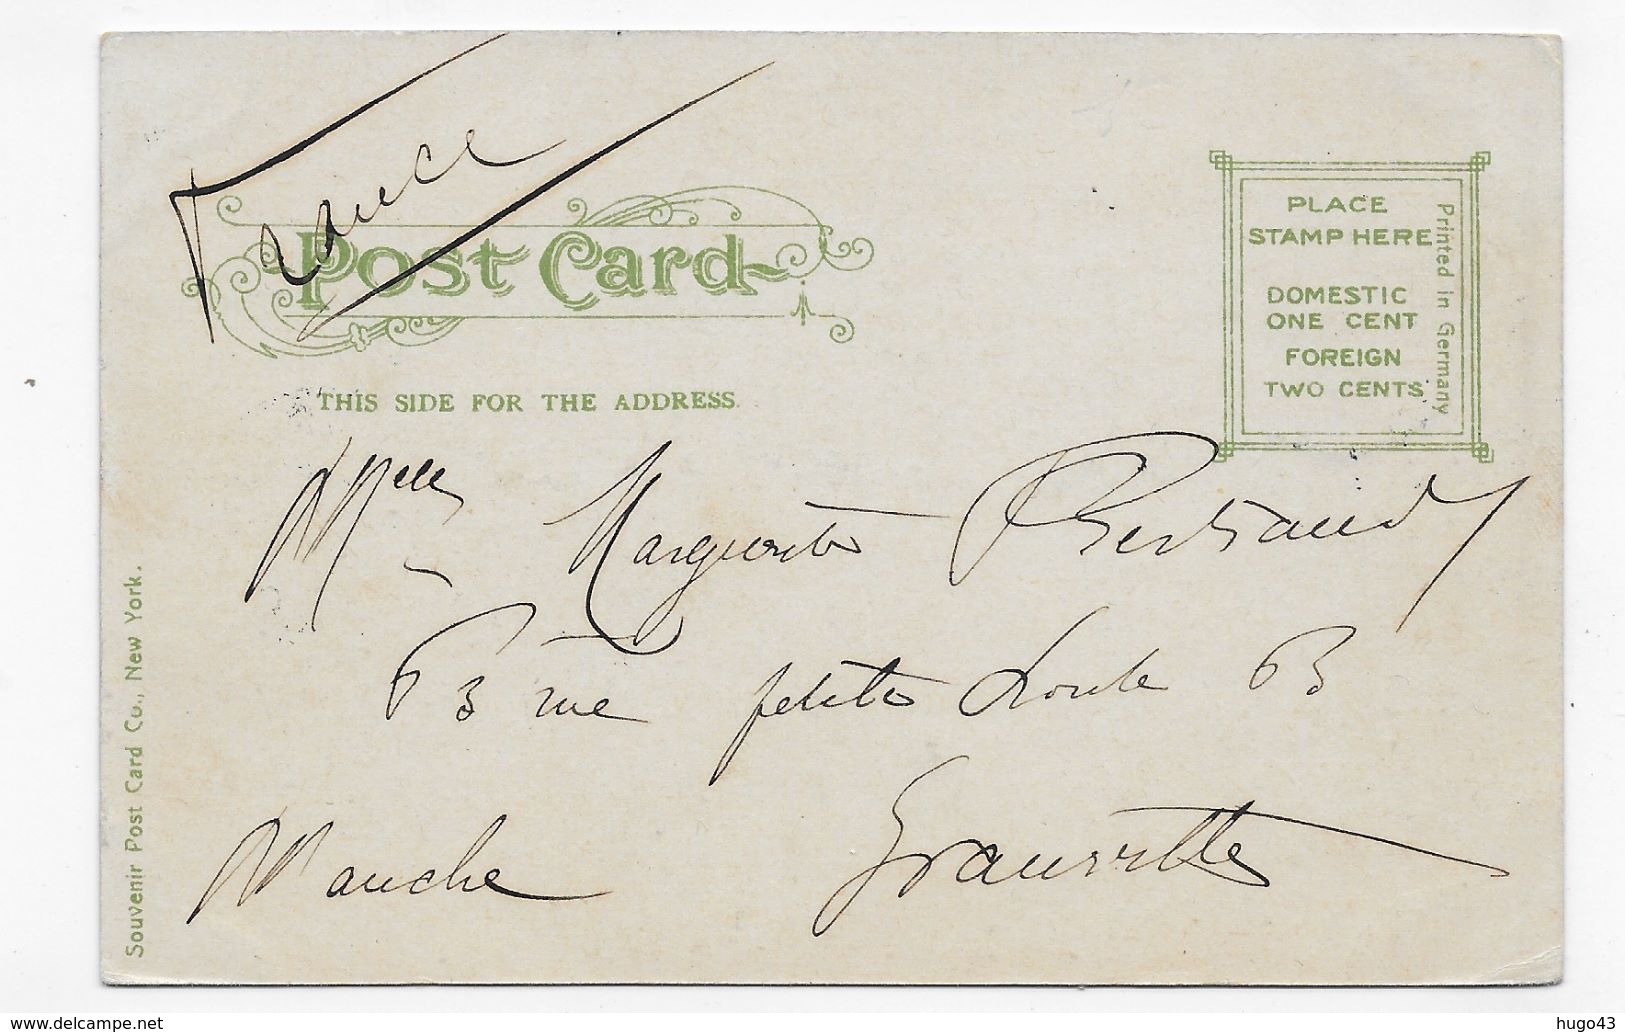 France
Post Card
THIS SIDE FOR THE ADDRESS
PLACE
STAMP HERE
DOMESTIC
ONE CENT
FOREIGN
TWO CENTS
Printed in Germany
Mlle Marguerite Bertrand
rue petite Route B
Granville
Manche
Souvenir Post Card Co., New York.
delcampe.net
hugo43